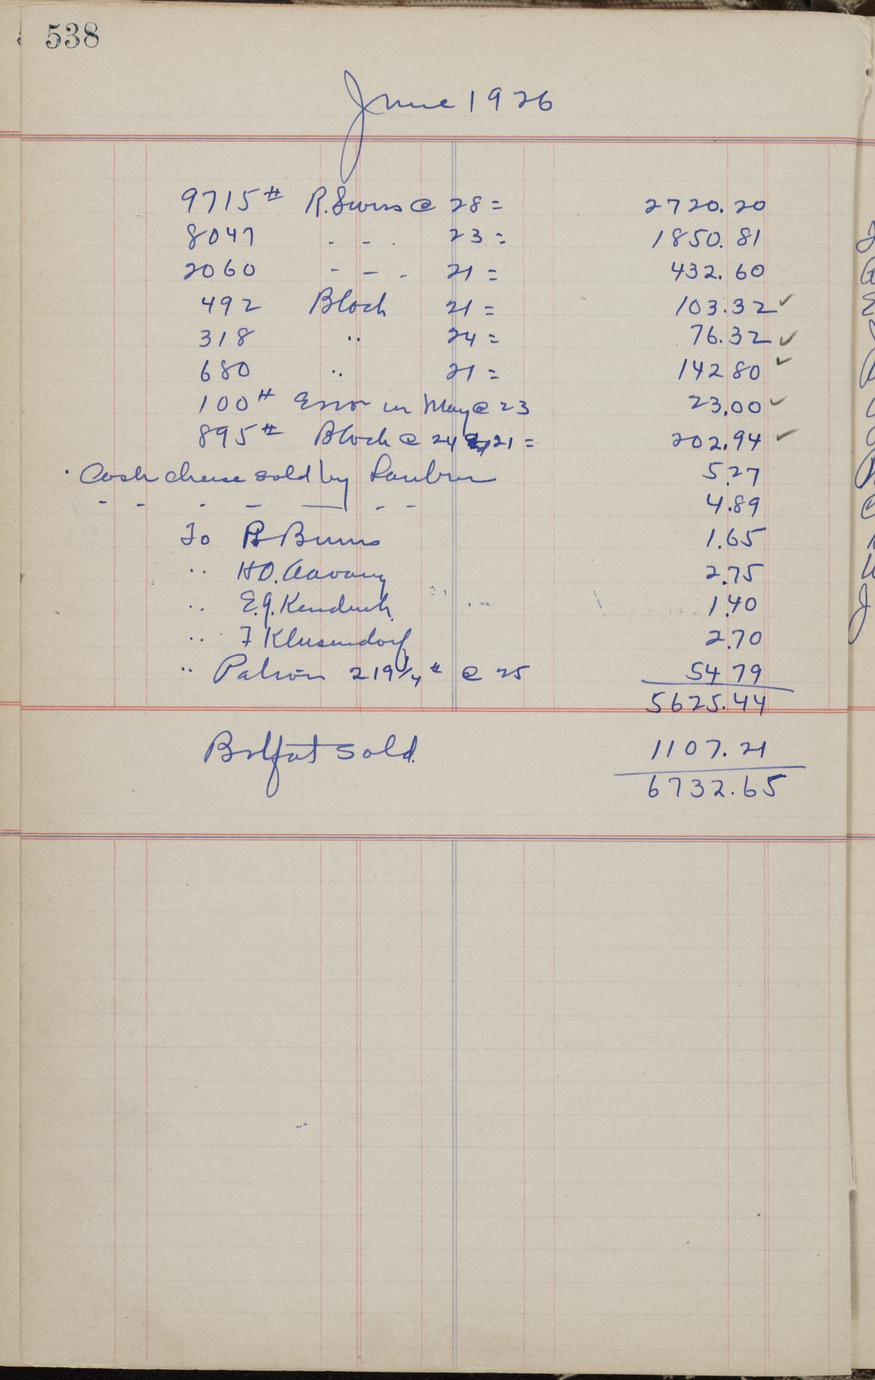 538
June 1926
9715# R. Swiss @ 28 = 2720.20
8047 - - . 23 = 1850.81
2060 - - . 21 = 432.60
492 Block 21 = 103.32 ✓
318 " 24 = 76.32 ✓
680 " 21 = 142 80 ✓
100# Error in May @ 23 23.00 ✓
895# Block @ 24 & 21 = 202.94 ✓
Cash cheese sold by 5.27
- - - - — - - 4.89
To B Burns 1.65
" H.O. Aavang 2.75
" E.J. Kendrick 1.40
" F Klusendorf 2.70
" Patron 219 1/4# @ 25 54 79
5625.44
Bolfat sold. 1107.21
6732.65